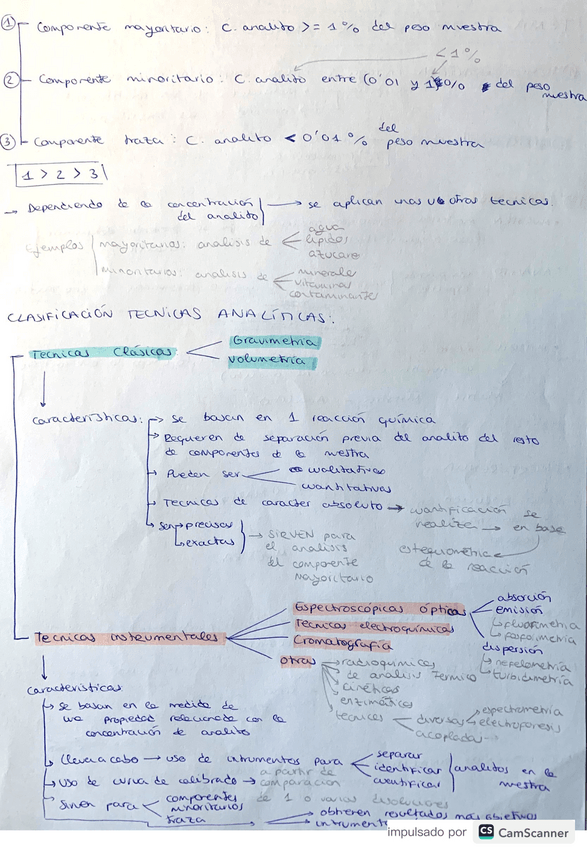 ① Componente mayoritario: C. analito >= 1% del peso muestra
< 1%
② Componente minoritario: C. analito entre (0'01 y 1% del peso muestra
③ Componente traza: C. analito < 0'01% del peso muestra
1 > 2 > 3
→ Dependiendo de la concentración del analito → se aplican unas u otras tecnicas.
Ejemplos
mayoritarios: analisis de
agua
lipidos
azucares
minoritarios: analisis de
minerales
vitaminas
contaminantes
CLASIFICACIÓN TECNICAS ANALÍTICAS:
Tecnicas Clásicas
Gravimetria
Volumetria
características:
→ Se basan en 1 reacción química
→ Requieren de separación previa del analito del resto
de componentes de la muestra
→ Pueden ser
cualitativas
cuantitativas
→ Tecnicas de caracter absoluto → cuantificación se
realiza → en base
estequiométrica
de la reacción
→ Son precisas
exactas
→ SIRVEN para
el analisis
del componente
mayoritario
Tecnicas instrumentales
Espectroscópicas ópticas
absorción
emisión
fluorimetria
fosforimetria
dispersión
nefelometria
turbidimetria
Tecnicas electroquimicas
Cromatografía
otras
radioquimicas
de analisis termico
cinéticas
enzimáticas
tecnicas
diversas
espectrometria
electroforesis
acopladas
características
→ se basan en la medida de
una propiedad relacionada con la
concentración de analito
→ lleva a cabo → uso de intrumentos para
separar
identificar
cuantificar
analitos en la
muestra
→ uso de curva de calibrado → a partir de
comparacion
de 1 o varias disoluciones
→ Sirven para
componentes
minoritarios
traza
obtienen resultados mas objetivos
impulsado por CS CamScanner